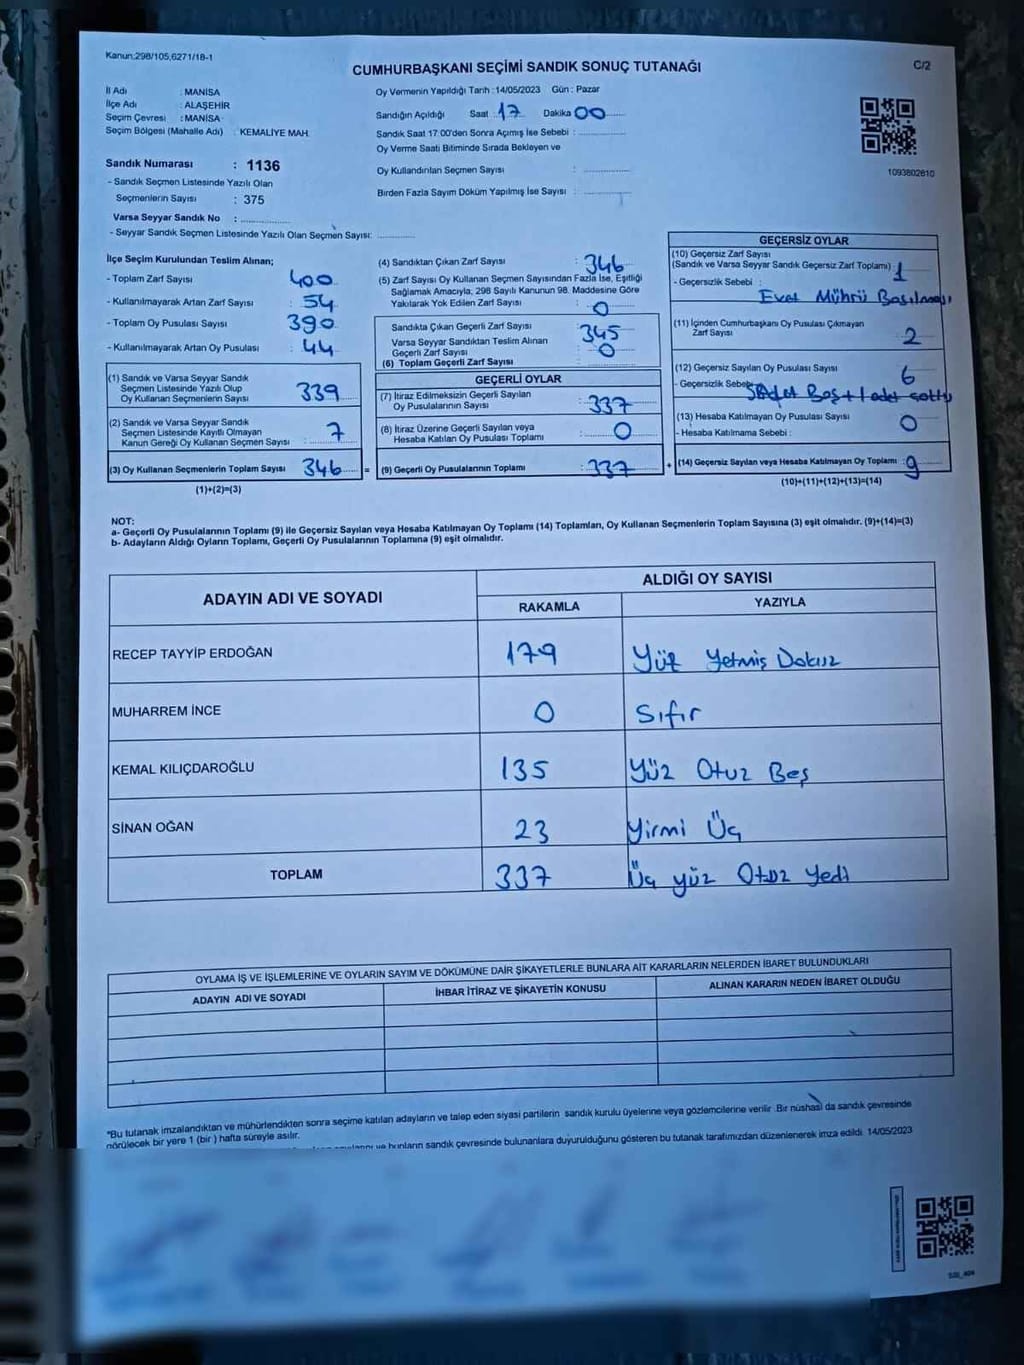 Kanun:298/105,6271/18-1
CUMHURBAŞKANI SEÇİMİ SANDIK SONUÇ TUTANAĞI
C/2
İl Adı : MANİSA
İlçe Adı : ALAŞEHİR
Seçim Çevresi : MANİSA
Seçim Bölgesi (Mahalle Adı) : KEMALİYE MAH.
Sandık Numarası : 1136
- Sandık Seçmen Listesinde Yazılı Olan
Seçmenlerin Sayısı : 375
Varsa Seyyar Sandık No : ..............
- Seyyar Sandık Seçmen Listesinde Yazılı Olan Seçmen Sayısı: ............
Oy Vermenin Yapıldığı Tarih :14/05/2023 Gün : Pazar
Sandığın Açıldığı Saat 17 Dakika 00
Sandık Saat 17.00'den Sonra Açımış İse Sebebi : ..............
Oy Verme Saati Bitiminde Sırada Bekleyen ve
Oy Kullandırılan Seçmen Sayısı : ..............
Birden Fazla Sayım Döküm Yapılmış İse Sayısı : ..............
1093802610
İlçe Seçim Kurulundan Teslim Alınan;
- Toplam Zarf Sayısı : 400
- Kullanılmayarak Artan Zarf Sayısı : 54
- Toplam Oy Pusulası Sayısı : 390
- Kullanılmayarak Artan Oy Pusulası : 44
(1) Sandık ve Varsa Seyyar Sandık
Seçmen Listesinde Yazılı Olup
Oy Kullanan Seçmenlerin Sayısı 339
(2) Sandık ve Varsa Seyyar Sandık
Seçmen Listesinde Kayıtlı Olmayan
Kanun Gereği Oy Kullanan Seçmen Sayısı : 7
(3) Oy Kullanan Seçmenlerin Toplam Sayısı 346 =
(1)+(2)=(3)
(4) Sandıktan Çıkan Zarf Sayısı : 346
(5) Zarf Sayısı Oy Kullanan Seçmen Sayısından Fazla İse, Eşitliği
Sağlamak Amacıyla, 298 Sayılı Kanunun 98. Maddesine Göre
Yakılarak Yok Edilen Zarf Sayısı : 0
Sandıkta Çıkan Geçerli Zarf Sayısı : 345
Varsa Seyyar Sandıktan Teslim Alınan
Geçerli Zarf Sayısı : 0
(6) Toplam Geçerli Zarf Sayısı :
GEÇERLİ OYLAR
(7) İtiraz Edilmeksizin Geçerli Sayılan
Oy Pusulalarının Sayısı : 337
(8) İtiraz Üzerine Geçerli Sayılan veya
Hesaba Katılan Oy Pusulası Toplamı : 0
(9) Geçerli Oy Pusulalarının Toplamı : 337 +
GEÇERSİZ OYLAR
(10) Geçersiz Zarf Sayısı
(Sandık ve Varsa Seyyar Sandık Geçersiz Zarf Toplamı) : 1
- Geçersizlik Sebebi :
Evet Mührü Basılması
(11) İçinden Cumhurbaşkanı Oy Pusulası Çıkmayan
Zarf Sayısı 2
(12) Geçersiz Sayılan Oy Pusulası Sayısı 6
- Geçersizlik Sebebi 5 Adet Boş + 1 adet
(13) Hesaba Katılmayan Oy Pusulası Sayısı 0
- Hesaba Katılmama Sebebi :
(14) Geçersiz Sayılan veya Hesaba Katılmayan Oy Toplamı : 9
(10)+(11)+(12)+(13)=(14)
NOT:
a- Geçerli Oy Pusulalarının Toplamı (9) ile Geçersiz Sayılan veya Hesaba Katılmayan Oy Toplamı (14) Toplamları, Oy Kullanan Seçmenlerin Toplam Sayısına (3) eşit olmalıdır. (9)+(14)=(3)
b- Adayların Aldığı Oyların Toplamı, Geçerli Oy Pusulalarının Toplamına (9) eşit olmalıdır.
ADAYIN ADI VE SOYADI
ALDIĞI OY SAYISI
RAKAMLA YAZIYLA
RECEP TAYYİP ERDOĞAN 179 Yüz Yetmiş Dokuz
MUHARREM İNCE 0 Sıfır
KEMAL KILIÇDAROĞLU 135 Yüz Otuz Beş
SİNAN OĞAN 23 Yirmi Üç
TOPLAM 337 Üç yüz Otuz Yedi
OYLAMA İŞ VE İŞLEMLERİNE VE OYLARIN SAYIM VE DÖKÜMÜNE DAİR ŞİKAYETLERLE BUNLARA AİT KARARLARIN NELERDEN İBARET BULUNDUKLARI
ADAYIN ADI VE SOYADI İHBAR İTİRAZ VE ŞİKAYETİN KONUSU ALINAN KARARIN NEDEN İBARET OLDUĞU
*Bu tutanak imzalandıktan ve mühürlendikten sonra seçime katılan adayların ve talep eden siyasi partilerin sandık kurulu üyelerine veya gözlemcilerine verilir. Bir nüshası da sandık çevresinde
görülecek bir yere 1 (bir ) hafta süreyle asılır.
ve bunların sandık çevresinde bulunanlara duyurulduğunu gösteren bu tutanak tarafımızdan düzenlenerek imza edildi. 14/05/2023